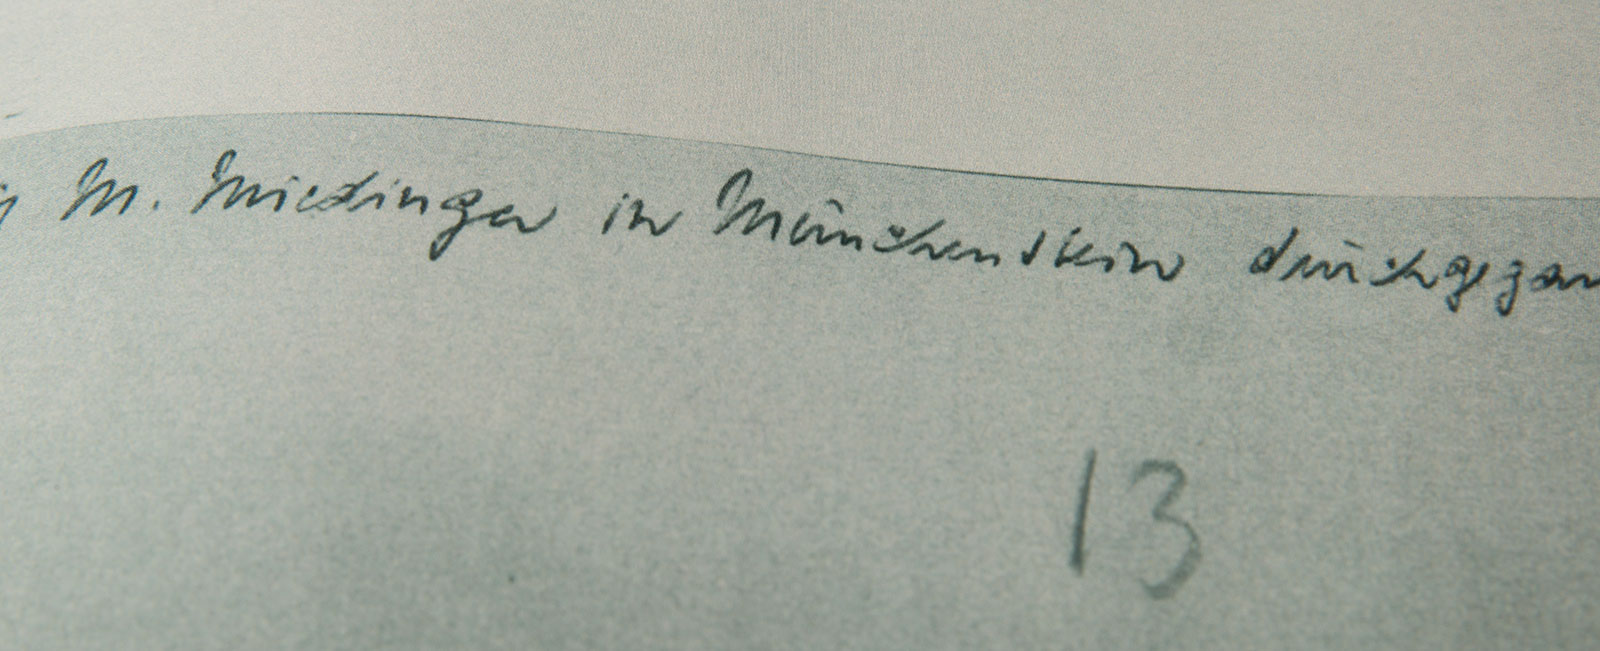 M. Miedinger in Münchenstein durchgegan
13